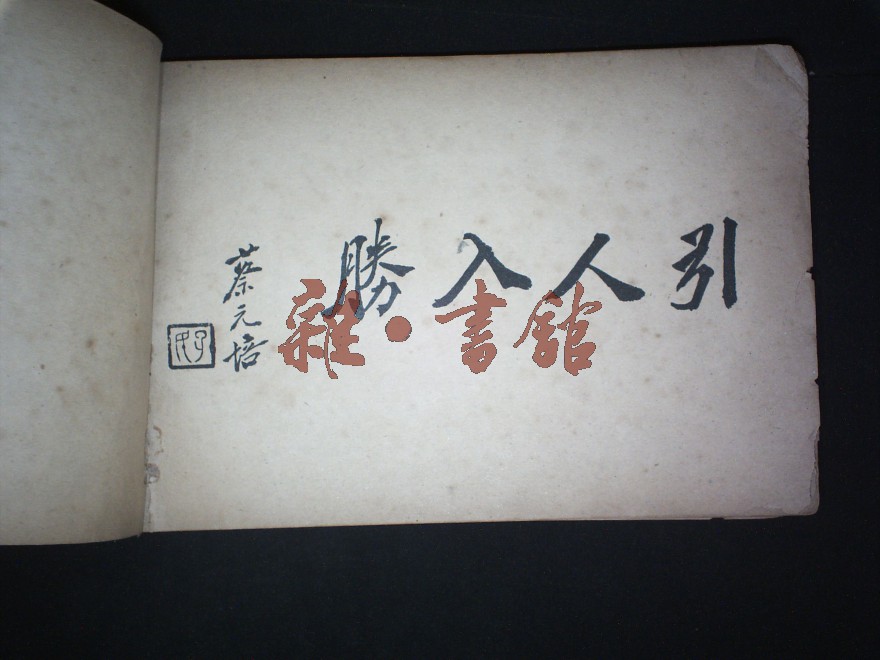 引人入勝
蔡元培
孑民
雜·書館